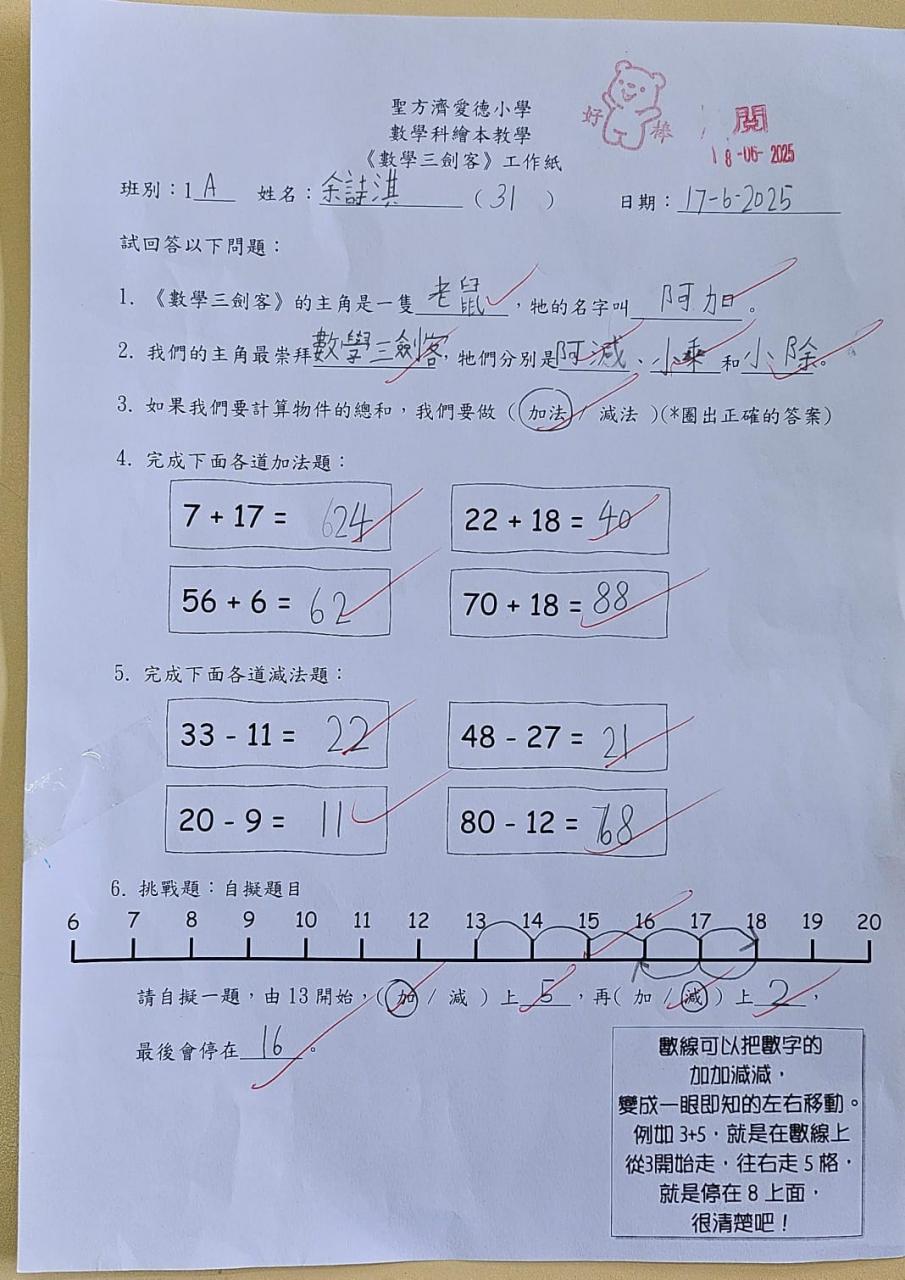 聖方濟愛德小學
數學科繪本教學
《數學三劍客》工作紙
好棒
閱
18-06-2025
班別：1 A 姓名：余詩淇 （ 31 ） 日期：17-6-2025
試回答以下問題：
1. 《數學三劍客》的主角是一隻 老鼠 ，牠的名字叫 阿加 。
2. 我們的主角最崇拜數學三劍客，牠們分別是阿減、小乘和小除。
3. 如果我們要計算物件的總和，我們要做（ 加法 / 減法 ）(*圈出正確的答案)
4. 完成下面各道加法題：
7 + 17 = 24 22 + 18 = 40
56 + 6 = 62 70 + 18 = 88
5. 完成下面各道減法題：
33 - 11 = 22 48 - 27 = 21
20 - 9 = 11 80 - 12 = 68
6. 挑戰題：自擬題目
6 7 8 9 10 11 12 13 14 15 16 17 18 19 20
請自擬一題，由 13 開始，( 加 / 減 ）上 5 ，再( 加 / 減 ）上 2 ，
最後會停在 16 。
數線可以把數字的
加加減減，
變成一眼即知的左右移動。
例如 3+5，就是在數線上
從3開始走，往右走 5 格，
就是停在 8 上面，
很清楚吧！